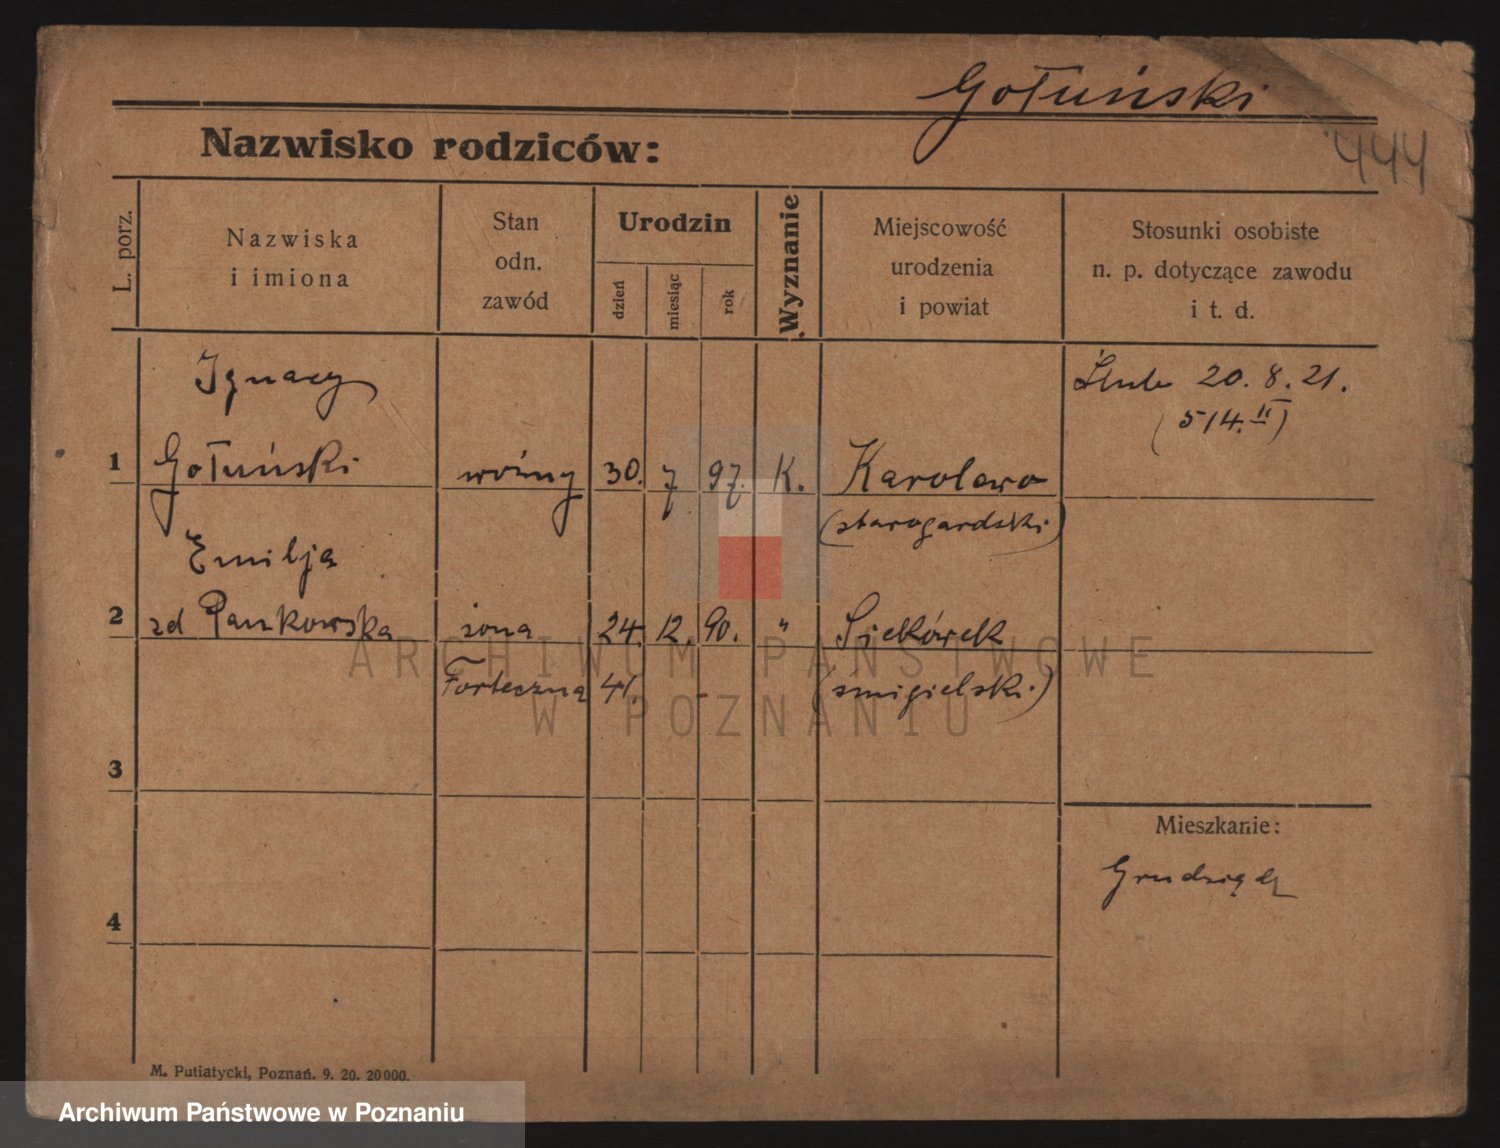 Gołuński
Nazwisko rodziców:
444
L. porz.
Nazwiska
i imiona
Stan
odn.
zawód
Urodzin
dzień
miesiąc
rok
Wyznanie
Miejscowość
urodzenia
i powiat
Stosunki osobiste
n. p. dotyczące zawodu
i t. d.
Ignacy
Ślub 20. 8. 21.
(514. II)
1 Gołuński woźny 30. 7 97. K. Karolewo
(starogardski)
Emilja
2 zd Pankowska żona 24. 12. 90. " Sjekówek
Forteczna 41. (śmigielski)
3
Mieszkanie:
Grudziądz
4
M. Putiatycki, Poznań. 9. 20. 20000.
ARCHIWUM PAŃSTWOWE
W POZNANIU
Archiwum Państwowe w Poznaniu